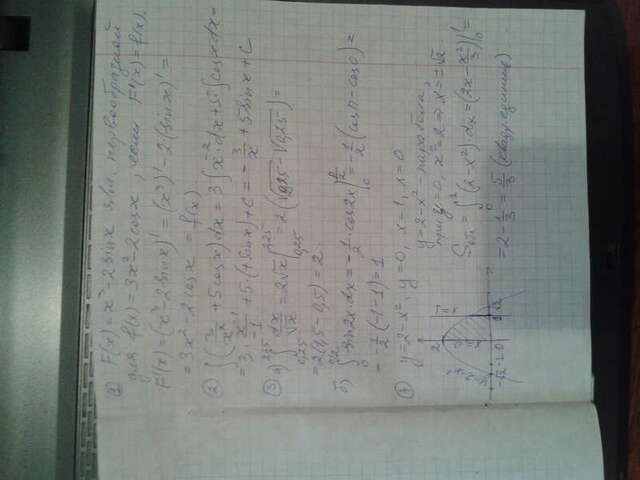 ① F(x)=x³-2sinx явл. первообразной
для f(x)=3x²-2cosx, если F'(x)=f(x).
F'(x)=(x³-2sinx)'=(x³)'-2(sinx)'=
=3x²-2cosx=f(x)
② ∫(3/x²+5cosx)dx=3∫x⁻²dx+5∫cosxdx=
=3·x⁻¹/-1+5·(+sinx)+C=-3/x+5sinx+C
③ а) ∫ dx/√x=2√x|=2(√2,25-√0,25)=
=2(1,5-0,5)=2.
б) ∫sin2x dx=-1/2cos2x|=-1/2(cosπ-cos0)=
=-1/2(-1-1)=1
④ y=2-x², y=0, x=1, x=0
y=2-x²-парабола,
при y=0, x²=2⇒x=±√2
=∫(2-x²)dx=(2x-x³/3)|=
=2-1/3=5/3 (квадр единиц)